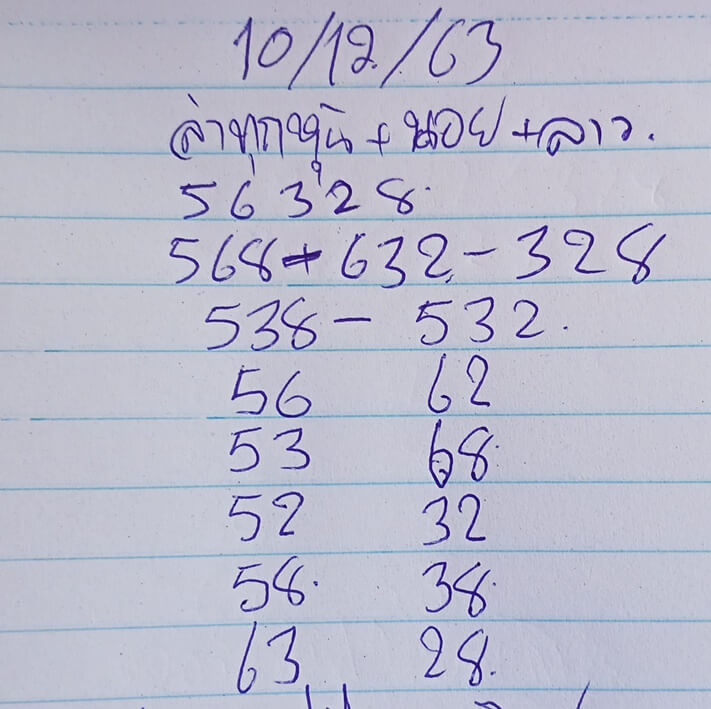 10/12/63
ล่าทุกหุ้น + นอย + ลาว.
56328.
568+632-328
538- 532.
56 62
53 68.
52 32
58. 38.
63 28.